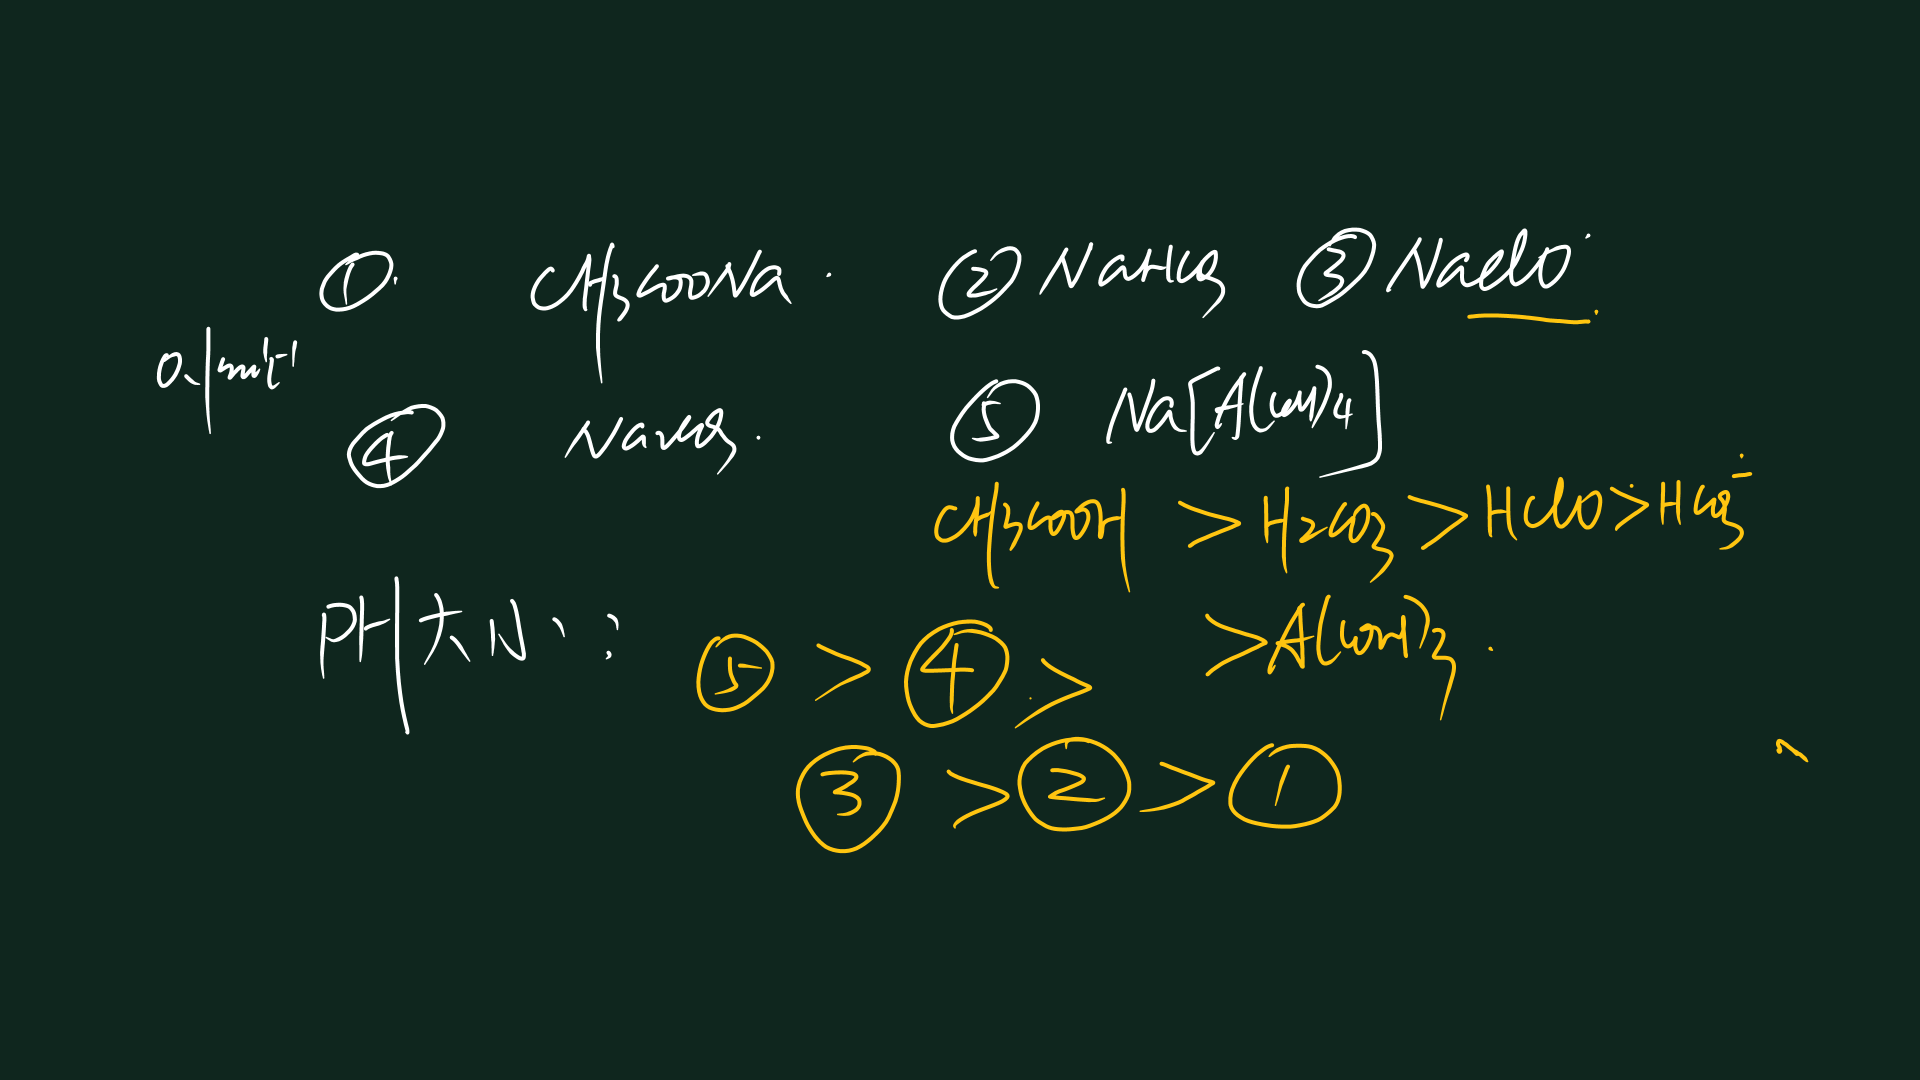 ① CH3COONa. ② NaHCO3 ③ NaClO.
0.1mol·L-1
④ Na2CO3. ⑤ Na[Al(OH)4]
CH3COOH > H2CO3 > HClO > HCO3-
> Al(OH)3.
PH大小:
⑤ > ④ >
③ > ② > ①